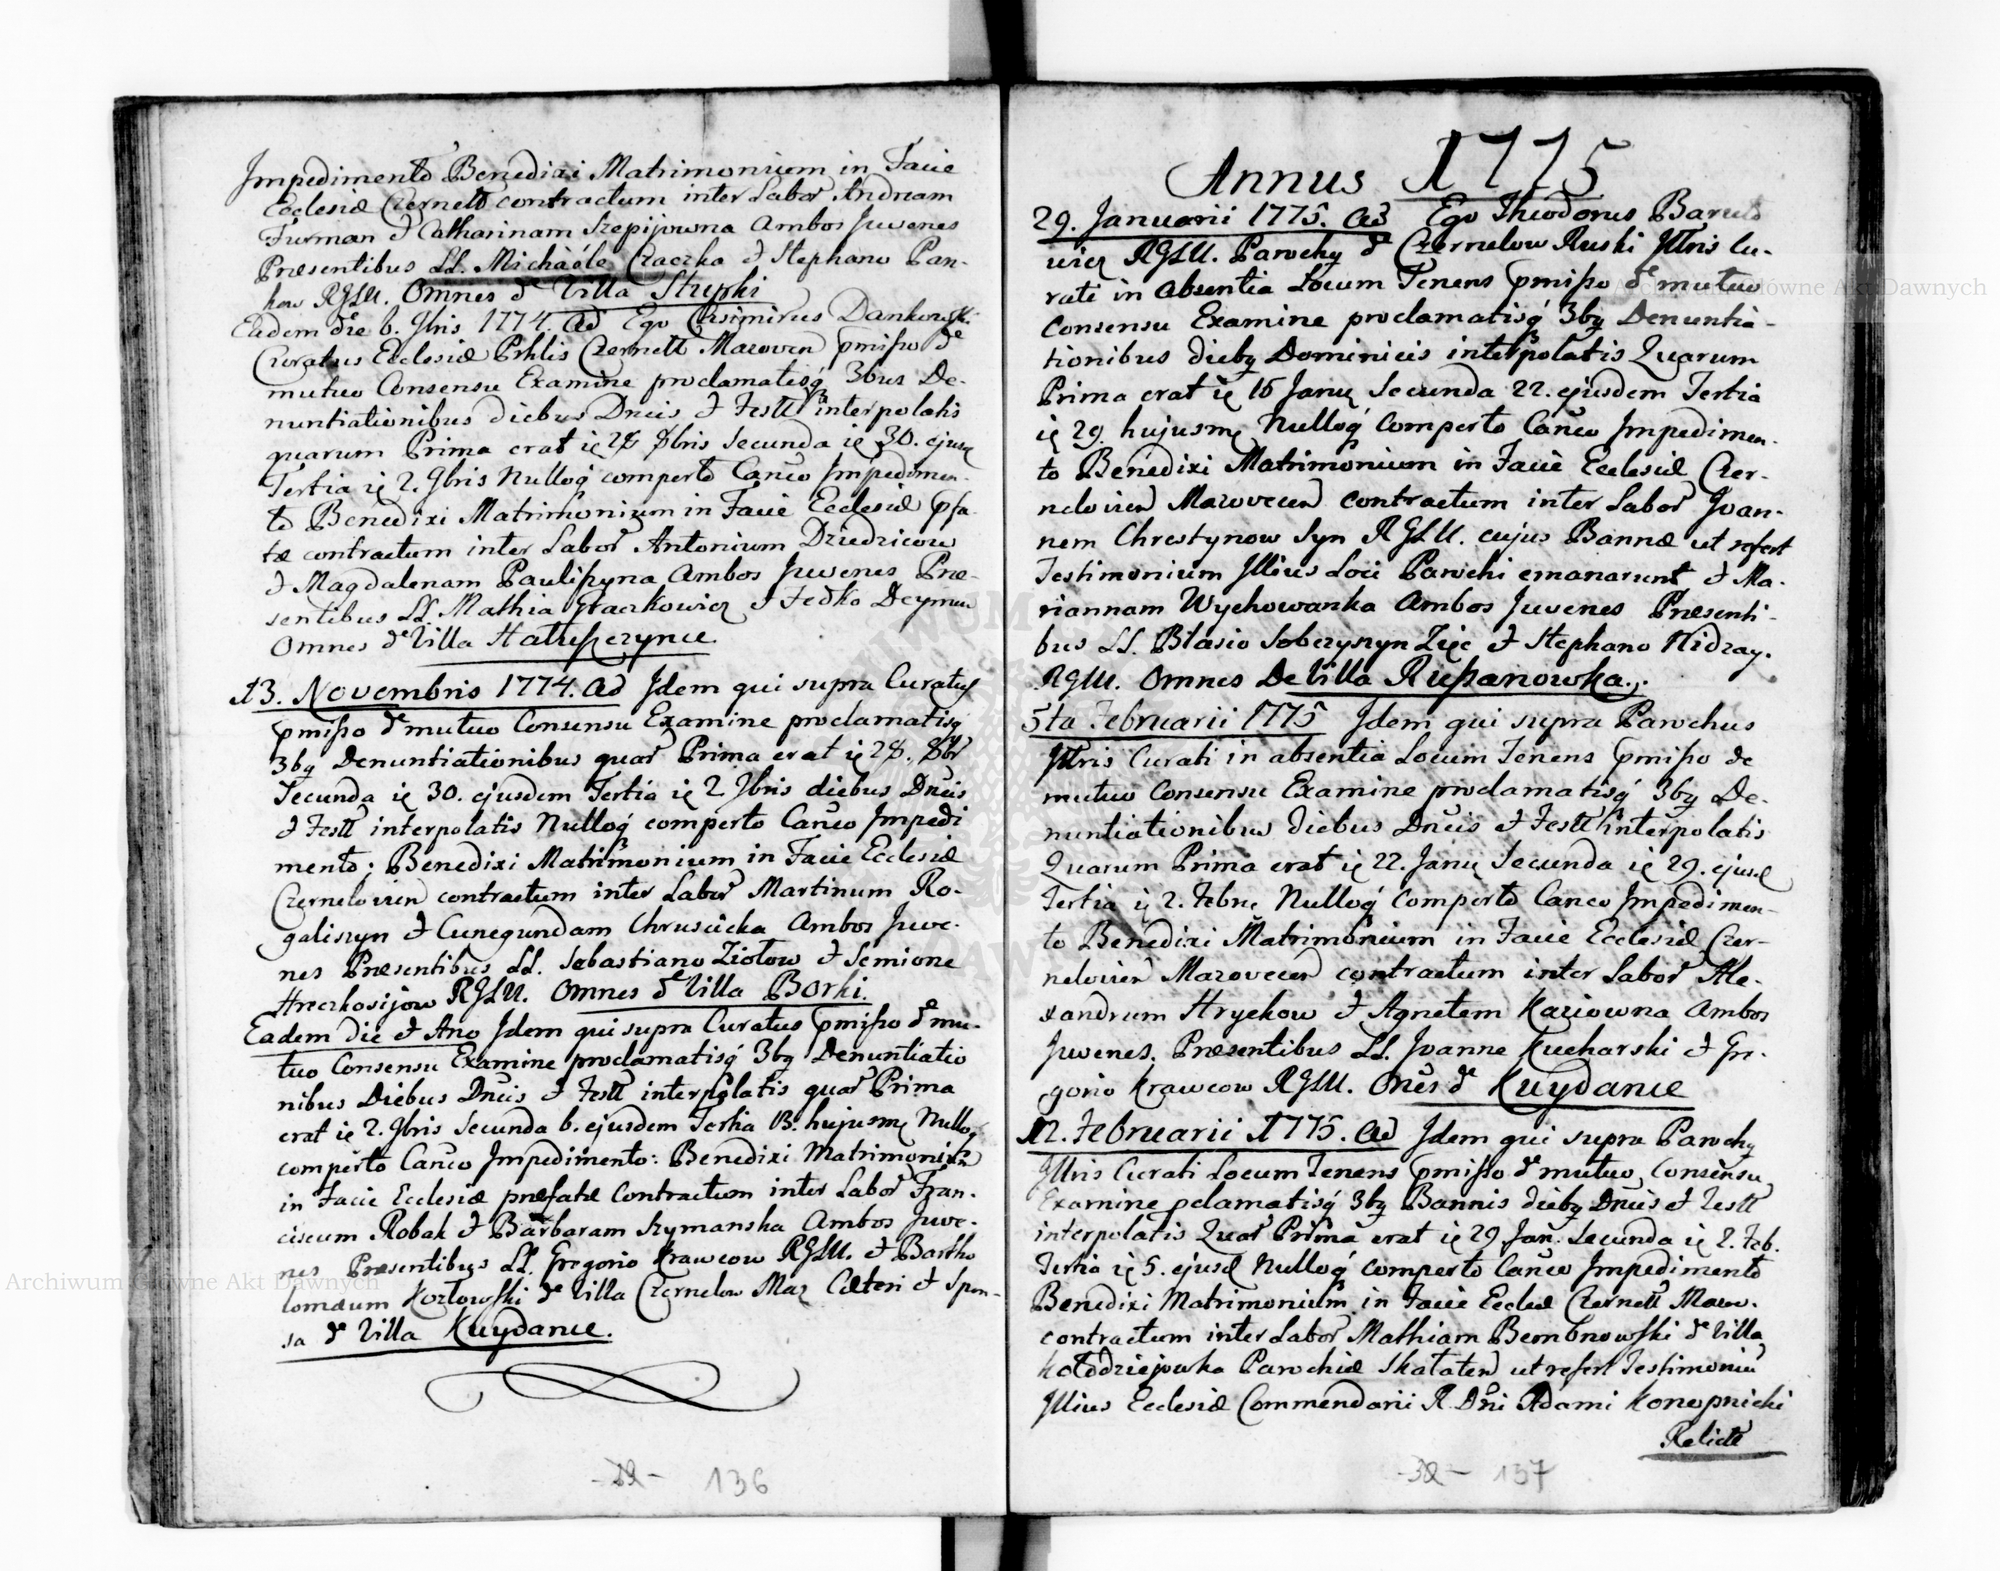 Impedimento Benedixi Matrimonium in Facie
Ecclesiæ Czernell contractum inter Labor Andream
Furman & Catharinam Szepijowna Ambos Juvenes
Præsentibus LL. Michaële Czaczka & Stephano Pan-
kow RGLU. Omnes de Villa Stupki
Eadem die 6. 9bris 1774. Ad Ego Casimirus Dankowski
Curatus Ecclesiæ Prhlis Czernell Mazowen pmisso de
mutuo Consensu Examine proclamatisq 3bus De-
nuntiationibus diebus Dnicis & Festl interpolatis
quarum Prima erat ie 28 8bris Secunda ie 30. ejusq
Tertia ie 2. 9bris Nulloq comperto Canco Impedimen-
to Benedixi Matrimonium in Facie Ecclesiæ pfa-
tæ contractum inter Labor Antonium Dziedzicow
& Magdalenam Paulissyna Ambos Juvenes Præ-
sentibus LL. Mathia Graczkowicz & Fedko Deymen
Omnes de Villa Haluszczynce.
13. Novembris 1774. Ad Idem qui supra Curatus
pmisso de mutuo Consensu Examine proclamatisq
3bq Denuntiationibus quar Prima erat ie 28. 8br
Secunda ie 30. ejusdem Tertia ie 2 9bris diebus Dnicis
& Festl interpolatis Nulloq comperto Canco Impedi
mento; Benedixi Matrimonium in Facie Ecclesiæ
Czernelovien contractum inter Labor Martinum Ro-
galiszyn & Cunegundam Chruscicka Ambos Juve-
nes Præsentibus LL. Sebastiano Ziolow & Semione
Hreczkosijow RGLU. Omnes de Villa Borki.
Eadem die & Ano Idem qui supra Curatus pmisso de mu-
tuo Consensu Examine proclamatisq 3bq Denuntiatio
nibus Diebus Dnicis & Festl interpolatis quar Prima
erat ie 2. 9bris Secunda 6. ejusdem Tertia 13. hujusmq Nulloq
comperto Canco Impedimento: Benedixi Matrimonium
in Facie Ecclesiæ præfatæ Contractum inter Labor Fran-
ciscum Robak & Barbaram Szymanska Ambos Juve-
nes Præsentibus LL. Gregorio Krawcow RGLU. & Bartho
lomæum Kozlowski de Villa Czernelow Maz Cæteri & Spon-
sa de Villa Kuydance.
136
Annus 1775
29. Januarii 1775. Ad Ego Theodorus Baruto
wicz RGLU. Parochq de Czernelow Ruski Illris Cu-
rati in Absentia Locum Tenens pmisso de mutuo
Consensu Examine proclamatisq 3bq Denuntia-
tionibus diebq Dominicis interpolatis Quarum
Prima erat ie 15 Janq Secunda 22. ejusdem Tertia
ie 29. hujusmq Nulloq Comperto Canco Impedimen-
to Benedixi Matrimonium in Facie Ecclesiæ Czer-
nelovien Mazovecen contractum inter Labor Joan-
nem Chrestynow Syn RGLU. cujus Bannæ ut refert
Testimonium Illius Loci Parochi emanarunt & Ma-
riannam Wychowanka Ambos Juvenes Præsenti-
bus LL. Blasio Soberyszyn Ziec & Stephano Nidzay.
RGLU. Omnes De Villa Rusanowka.
5ta Februarii 1775 Idem qui supra Parochus
Illris Curati in absentia Locum Tenens pmisso de
mutuo Consensu Examine proclamatisq 3bq De-
nuntiationibus diebus Dnicis & Festl interpolatis
Quarum Prima erat ie 22. Janq Secunda ie 29. ejusd
Tertia ie 2. Febrq Nulloq Comperto Canco Impedimen-
to Benedixi Matrimonium in Facie Ecclesiæ Czer-
nelovien Mazovecen contractum inter Labor Ale-
xandrum Hryckow & Agnetem Kaziowna Ambos
Juvenes. Præsentibus LL. Joanne Kucharski & Gre-
gorio Krawcow RGLU. Ones de Kuydance
12. Februarii 1775. Ad Idem qui supra Parochq
Illris Curati Locum Tenens pmisso de mutuo Consensu
Examine pclamatisq 3bq Bannis diebq Dnicis & Festl
interpolatis Quar Prima erat ie 29 Jan. Secunda ie 2. Feb.
Tertia ie 5. ejusd Nulloq Comperto Canco Impedimento
Benedixi Matrimonium in Facie Eccles Czernell Mazow.
contractum inter Labor Mathiam Bembnowski de Villa
Kołodziejowka Parochiæ Skalaten ut refert Testimoniu
Illius Ecclesiæ Commendarii R. Dni Adami Konopnicki
Relictæ
137
Archiwum Główne Akt Dawnych
Archiwum Główne Akt Dawnych